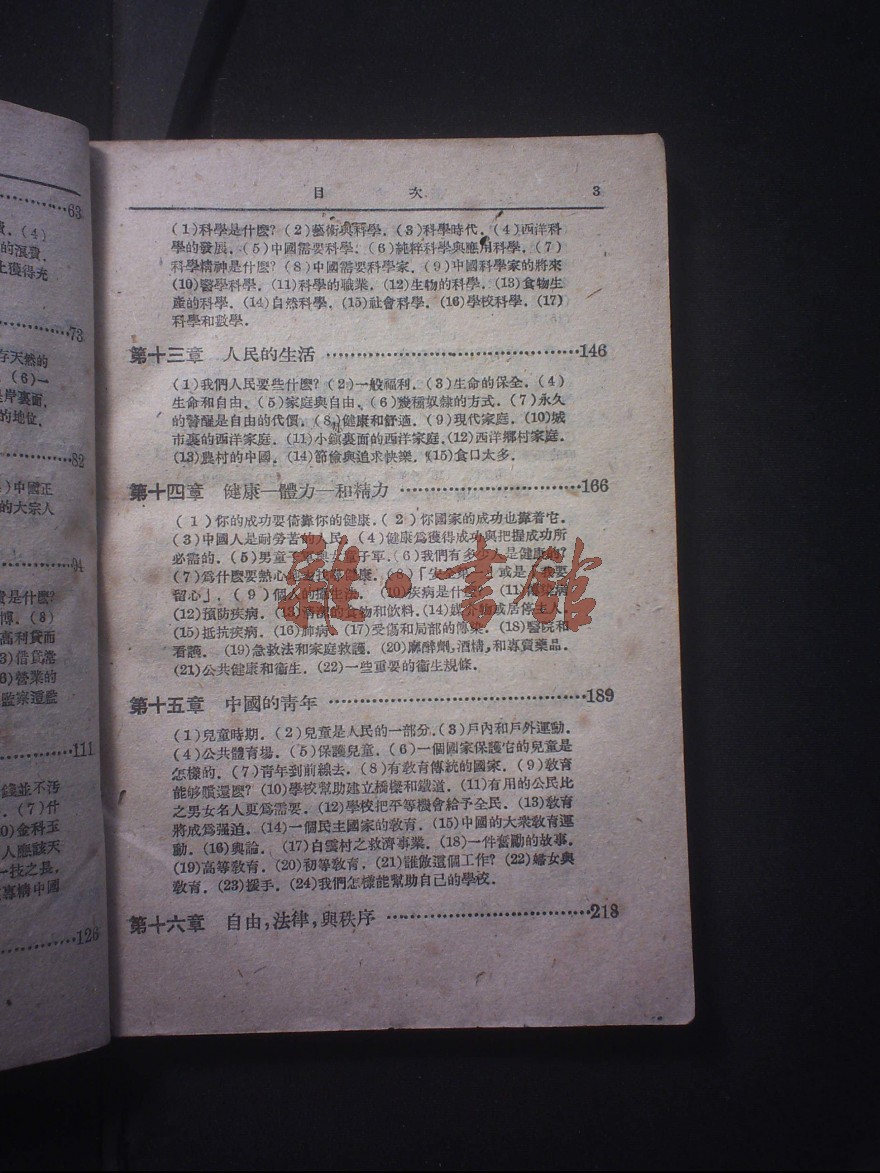 63
(4)
的浪費．
上獲得充
73
存天然的
(6)一
是岸裏面，
的地位．
82
)中國正
的大宗人
94
費是什麽?
博．(8)
高利貸而
3)借貸常
6)營業的
111
錢並不汚
．(7)什
0)金科玉
人應該天
一技之長．
126
目　次　3
(1)科學是什麽? (2)藝術與科學．(3)科學時代．(4)西洋科
學的發展．(5)中國需要科學．(6)純粹科學與應用科學．(7)
科學精神是什麽? (8)中國需要科學家．(9)中國科學家的將來
(10)醫學科學．(11)科學的職業．(12)生物的科學．(13)食物生
產的科學．(14)自然科學．(15)社會科學．(16)學校科學．(17)
科學和數學．
第十三章　人民的生活……………………………146
(1)我們人民要些什麽? (2)一般福利．(3)生命的保全．(4)
生命和自由．(5)家庭與自由．(6)幾種奴隸的方式．(7)永久
的警醒是自由的代價．(8)健康和舒適．(9)現代家庭．(10)城
市裏的西洋家庭．(11)小鎮裏面的西洋家庭．(12)西洋鄉村家庭．
(13)農村的中國．(14)節儉與追求快樂．(15)食口太多．
第十四章　健康—體力—和精力……………………166
(1)你的成功要倚靠你的健康．(2)你國家的成功也靠着它．
(3)中國人是耐勞苦的人民．(4)健康爲獲得成功與把握成功所
必需的．(5)男童子軍與女童子軍．(6)我們有多少人是健康的?
(7)爲什麽要熱心健康．(8)「安全第一」或是「要
留心」．(9)個人的衞生法．(10)疾病是什麽?(11)傳染病
(12)預防疾病．(13)清潔的食物和飲料．(14)媒介物或居停主人．
(15)抵抗疾病．(16)肺病．(17)受傷和局部的傳染．(18)醫院和
看護．(19)急救法和家庭救護．(20)麻醉劑，酒精，和專賣藥品．
(21)公共健康和衞生．(22)一些重要的衞生規條．
第十五章　中國的靑年……………………………189
(1)兒童時期．(2)兒童是人民的一部分．(3)戶內和戶外運動．
(4)公共體育場．(5)保護兒童．(6)一個國家保護它的兒童是
怎樣的．(7)靑年到前線去．(8)有敎育傳統的國家．(9)敎育
能够購還麽? (10)學校幫助建立橋樑和鐵道．(11)有用的公民比
之男女名人更爲需要．(12)學校把平等機會給予全民．(13)敎育
將成爲强迫．(14)一個民主國家的敎育．(15)中國的大衆敎育運
動．(16)輿論．(17)白雲村之救濟事業．(18)一件奮勵的故事．
(19)高等敎育．(20)初等敎育．(21)誰做這個工作? (22)婦女與
敎育．(23)援手．(24)我們怎樣能幫助自己的學校．
第十六章　自由，法律，與秩序……………………218
雜·書館